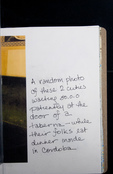 A random photo
of these 2 cuties
waiting so
patiently at the
door of a
taberna - while
their folks eat
dinner inside
in Cordoba.